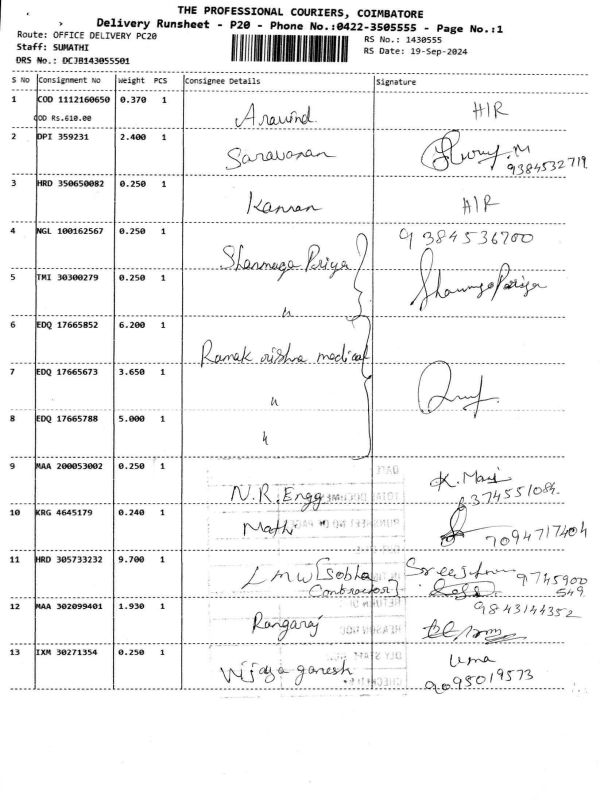 THE PROFESSIONAL COURIERS, COIMBATORE
Delivery Runsheet - P20 - Phone No.:0422-3505555 - Page No.:1
Route: OFFICE DELIVERY PC20
RS No.: 1430555
Staff: SUMATHI
RS Date: 19-Sep-2024
DRS No.: DCJB143055501
S No Consignment No Weight PCS Consignee Details Signature
1 COD 1112160650 0.370 1 Aravind H/R
COD Rs.610.00
2 DPI 359231 2.400 1 Saravanan
9384532719
3 HRD 350650082 0.250 1 Kannan H/R
4 NGL 100162567 0.250 1 Shanmuga Priya 9384536700
5 TMI 30300279 0.250 1 〃 Shanmuga Priya
6 EDQ 17665852 6.200 1 Ramakrishna medical
7 EDQ 17665673 3.650 1 〃
8 EDQ 17665788 5.000 1 〃
9 MAA 200053002 0.250 1 N.R. Engg K. Mani
6374551084
10 KRG 4645179 0.240 1 Mathi 7094717404
11 HRD 305733232 9.700 1 LMW [Sobha Contractor] 9745900549
12 MAA 302099401 1.930 1 Rangaraj 9843144352
13 IXM 30271354 0.250 1 Vijaya ganesh Uma
9095019573